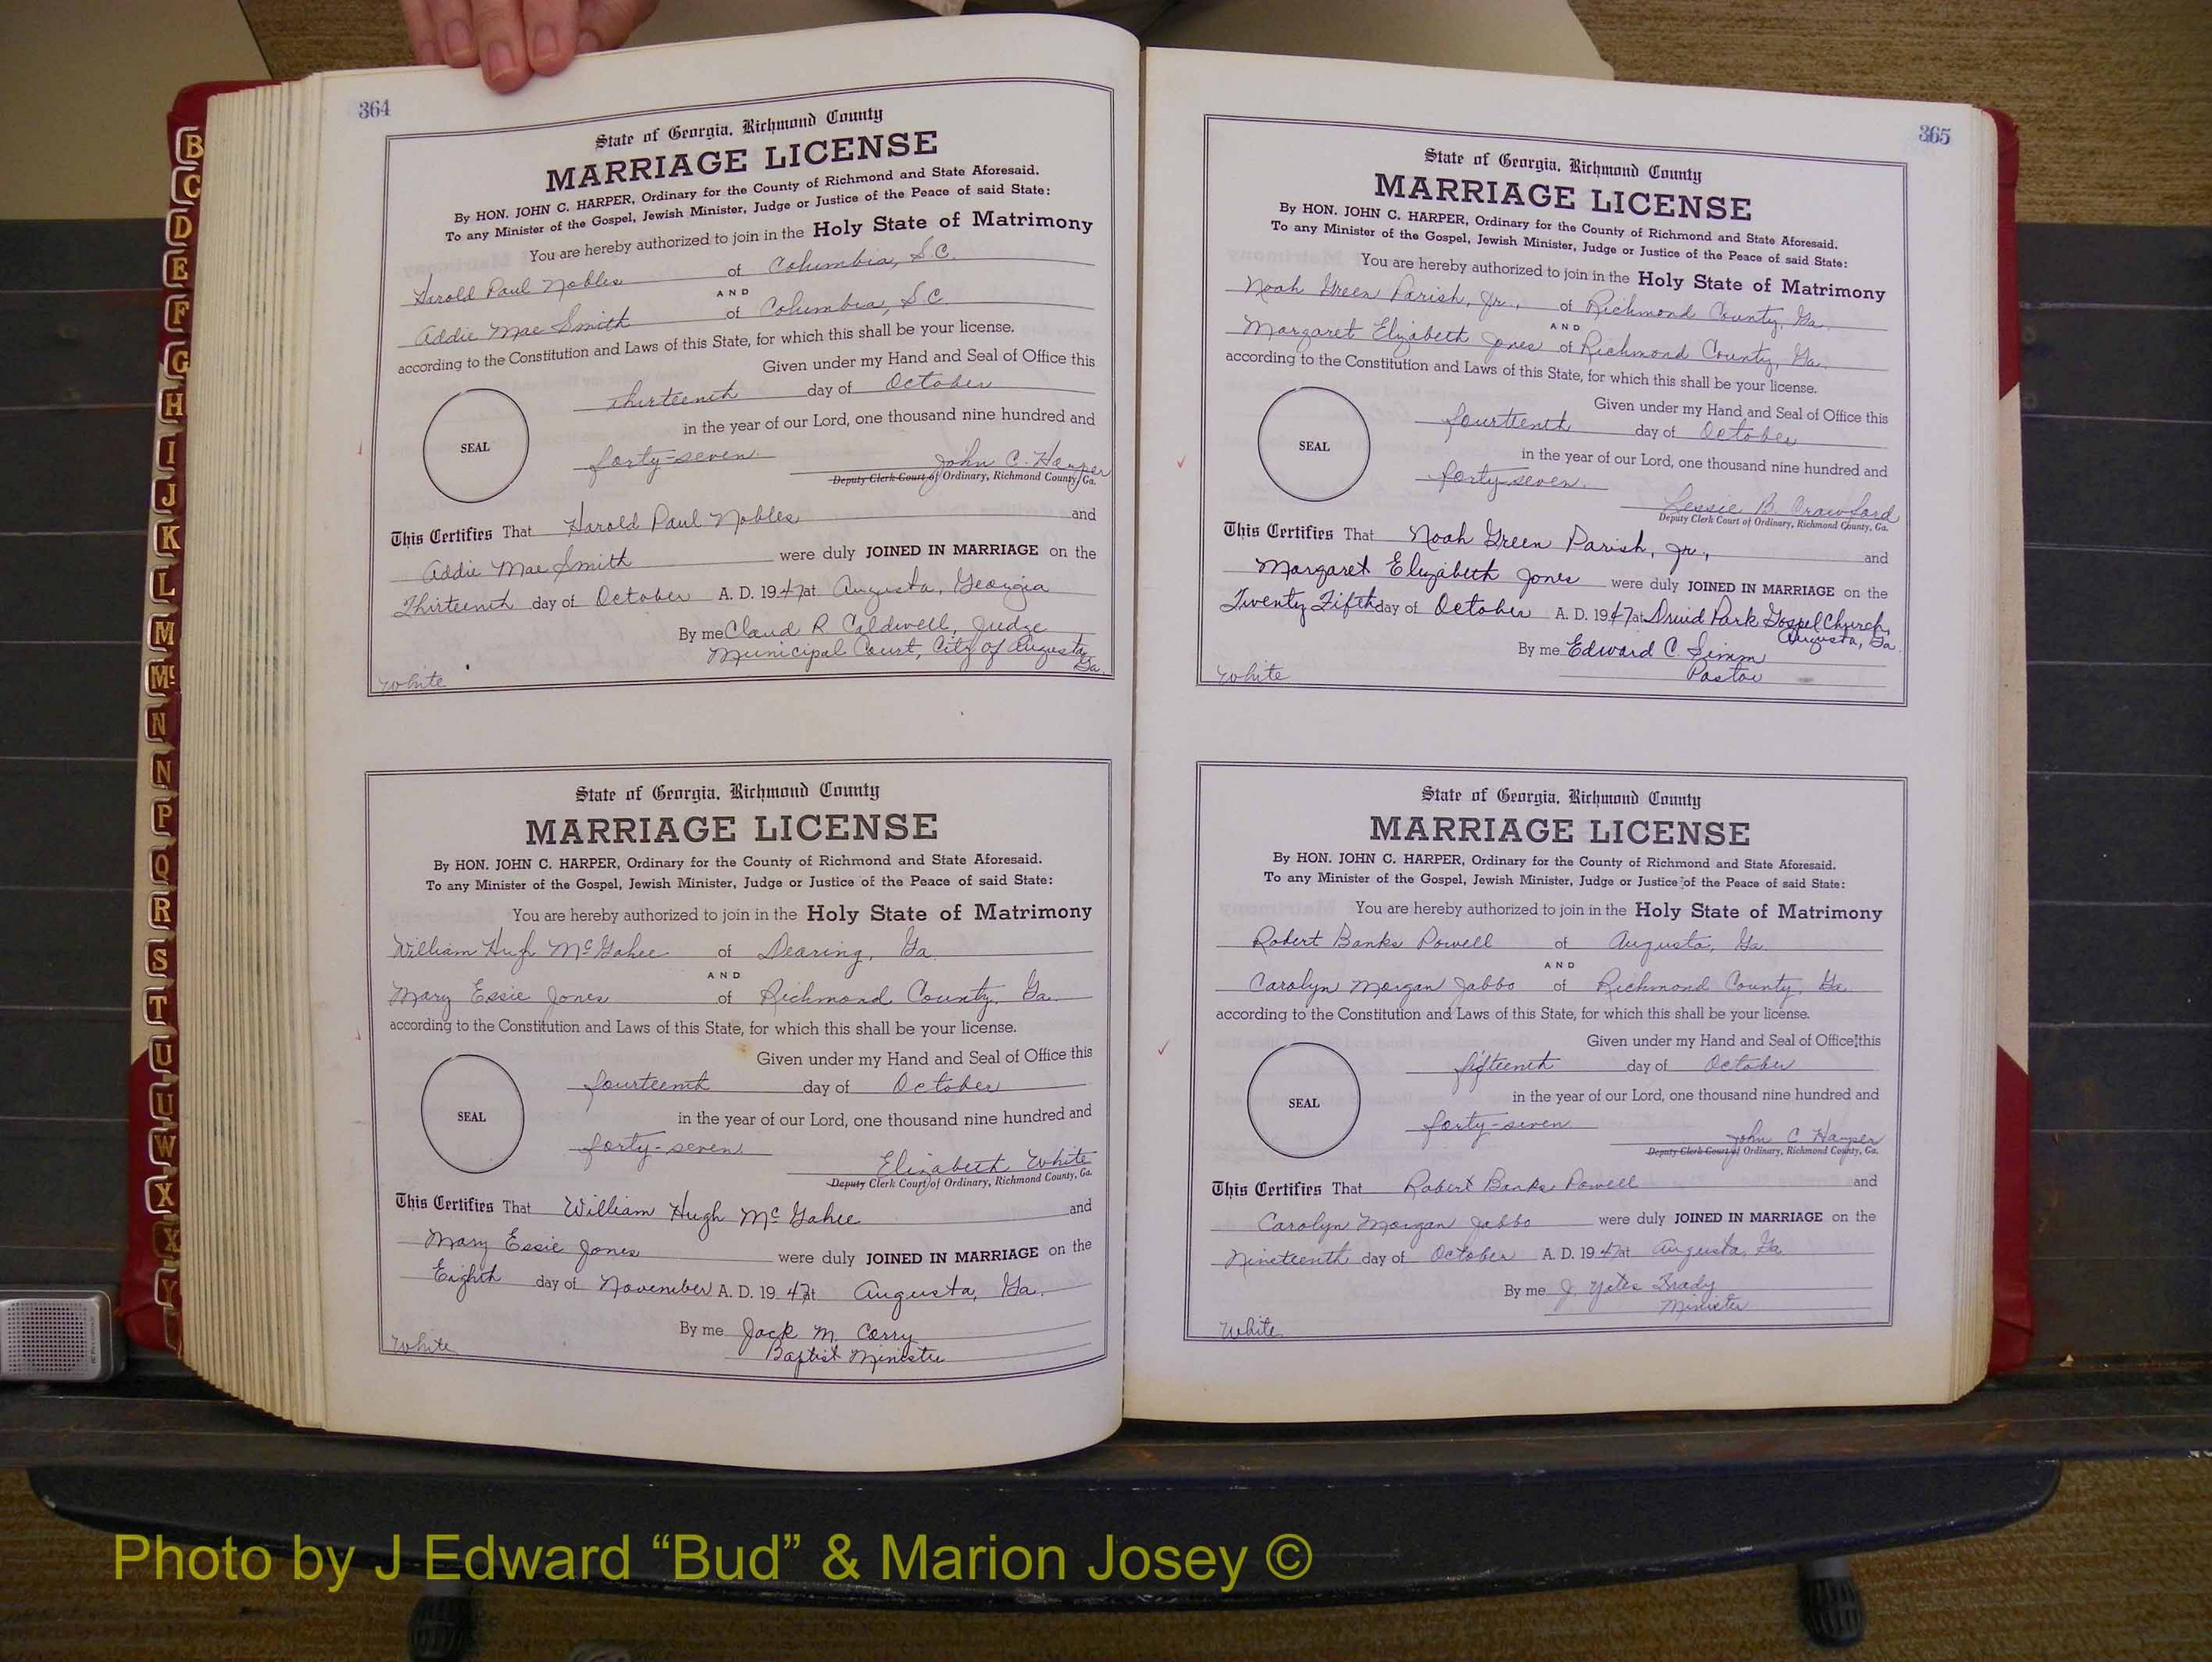 364
State of Georgia, Richmond County
MARRIAGE LICENSE
By HON. JOHN C. HARPER, Ordinary for the County of Richmond and State Aforesaid.
To any Minister of the Gospel, Jewish Minister, Judge or Justice of the Peace of said State:
You are hereby authorized to join in the Holy State of Matrimony
Harold Paul Nobles of Columbia, S.C.
AND
Addie Mae Smith of Columbia, S.C.
according to the Constitution and Laws of this State, for which this shall be your license.
Given under my Hand and Seal of Office this
Thirteenth day of October
in the year of our Lord, one thousand nine hundred and
SEAL
forty-seven. John C. Harper
Deputy Clerk Court of Ordinary, Richmond County, Ga.
This Certifies That Harold Paul Nobles and
Addie Mae Smith were duly JOINED IN MARRIAGE on the
Thirteenth day of October A. D. 1947 at Augusta, Georgia
By me Claud R. Caldwell, Judge
Municipal Court, City of Augusta,
Ga.
White
State of Georgia, Richmond County
MARRIAGE LICENSE
By HON. JOHN C. HARPER, Ordinary for the County of Richmond and State Aforesaid.
To any Minister of the Gospel, Jewish Minister, Judge or Justice of the Peace of said State:
You are hereby authorized to join in the Holy State of Matrimony
William Hugh McGahee of Dearing, Ga.
AND
Mary Essie Jones of Richmond County, Ga.
according to the Constitution and Laws of this State, for which this shall be your license.
Given under my Hand and Seal of Office this
fourteenth day of October
in the year of our Lord, one thousand nine hundred and
SEAL
forty-seven. Elizabeth White
Deputy Clerk Court of Ordinary, Richmond County, Ga.
This Certifies That William Hugh McGahee and
Mary Essie Jones were duly JOINED IN MARRIAGE on the
Eighth day of November A. D. 1947 at Augusta, Ga.
By me Jack M.
Baptist Minister
White
365
State of Georgia, Richmond County
MARRIAGE LICENSE
By HON. JOHN C. HARPER, Ordinary for the County of Richmond and State Aforesaid.
To any Minister of the Gospel, Jewish Minister, Judge or Justice of the Peace of said State:
You are hereby authorized to join in the Holy State of Matrimony
Noah Green Parish, Jr., of Richmond County, Ga.
AND
Margaret Elizabeth Jones of Richmond County, Ga.
according to the Constitution and Laws of this State, for which this shall be your license.
Given under my Hand and Seal of Office this
fourteenth day of October
in the year of our Lord, one thousand nine hundred and
SEAL
forty-seven. B. Crawford
Deputy Clerk Court of Ordinary, Richmond County, Ga.
This Certifies That Noah Green Parish, Jr., and
Margaret Elizabeth Jones were duly JOINED IN MARRIAGE on the
Twenty Fifth day of October A. D. 1947 at Druid Park Gospel Church,
Augusta, Ga.
By me Edward C.
Pastor
White
State of Georgia, Richmond County
MARRIAGE LICENSE
By HON. JOHN C. HARPER, Ordinary for the County of Richmond and State Aforesaid.
To any Minister of the Gospel, Jewish Minister, Judge or Justice of the Peace of said State:
You are hereby authorized to join in the Holy State of Matrimony
Robert Banks Powell of Augusta, Ga.
AND
Carolyn Morgan Jabbo of Richmond County, Ga.
according to the Constitution and Laws of this State, for which this shall be your license.
Given under my Hand and Seal of Office this
fifteenth day of October
in the year of our Lord, one thousand nine hundred and
SEAL
forty-seven John C Harper
Deputy Clerk Court of Ordinary, Richmond County, Ga.
This Certifies That Robert Banks Powell and
Carolyn Morgan Jabbo were duly JOINED IN MARRIAGE on the
Nineteenth day of October A. D. 1947 at Augusta, Ga
By me J. Yates Brady
Minister
White
B
C
D
E
F
G
H
I
J
K
L
M
Mc
N
N
P
Q
R
S
T
U
U
W
X
X
Y
Photo by J Edward “Bud” & Marion Josey ©